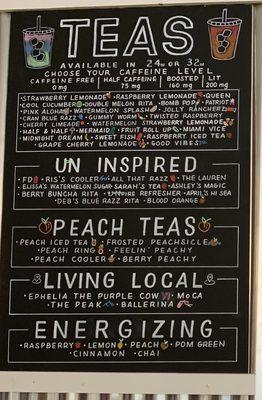 TEAS
AVAILABLE IN 24oz OR 32oz
CHOOSE YOUR CAFFEINE LEVEL
CAFFEINE FREE | HALF CAFFEINE | BOOSTED | LIT
0 mg 75 mg 160 mg 200 mg
•STRAWBERRY LEMONADE •RASPBERRY LEMONADE •QUEEN
COOL CUCUMBER •DOUBLE MELON RITA •BOMB POP •PATRIOT
•PINK ALOHA •WATERMELON SPLASH •JOLLY RANCHERZ
CRAN BLUE RAZZ •GUMMY WORM •TWISTED RASPBERRY
CHERRY LIMEADE •WATERMELON STRAWBERRY LEMONADE
HALF & HALF •MERMAID •FRUIT ROLL UP •MIAMI VICE
MIDNIGHT DREAM •SWEET FISH •RASPBERRY ICED TEA
GRAPE CHERRY LEMONADE •GOOD VIBES
UN INSPIRED
•FD •RIS'S COOLER •ALL THAT RAZZ •THE LAUREN
ELISSA'S WATERMELON SUGAR •SARAH'S TEA •ASHLEY'S MAGIC
BERRY BUNCHA RITA •EMPIRE REFRESHER •APRIL'S HI SEA
•DEB'S BLUE RAZZ RITA •BLOOD ORANGE
PEACH TEAS
PEACH ICED TEA •FROSTED PEACHSICLE
PEACH RING •FEELIN' PEACHY
PEACH COOLER •BERRY PEACHY
LIVING LOCAL
•EPHELIA THE PURPLE COW •MoCA
•THE PEAK •BALLERINA
ENERGIZING
•RASPBERRY •LEMON •PEACH •POM GREEN
•CINNAMON •CHAI